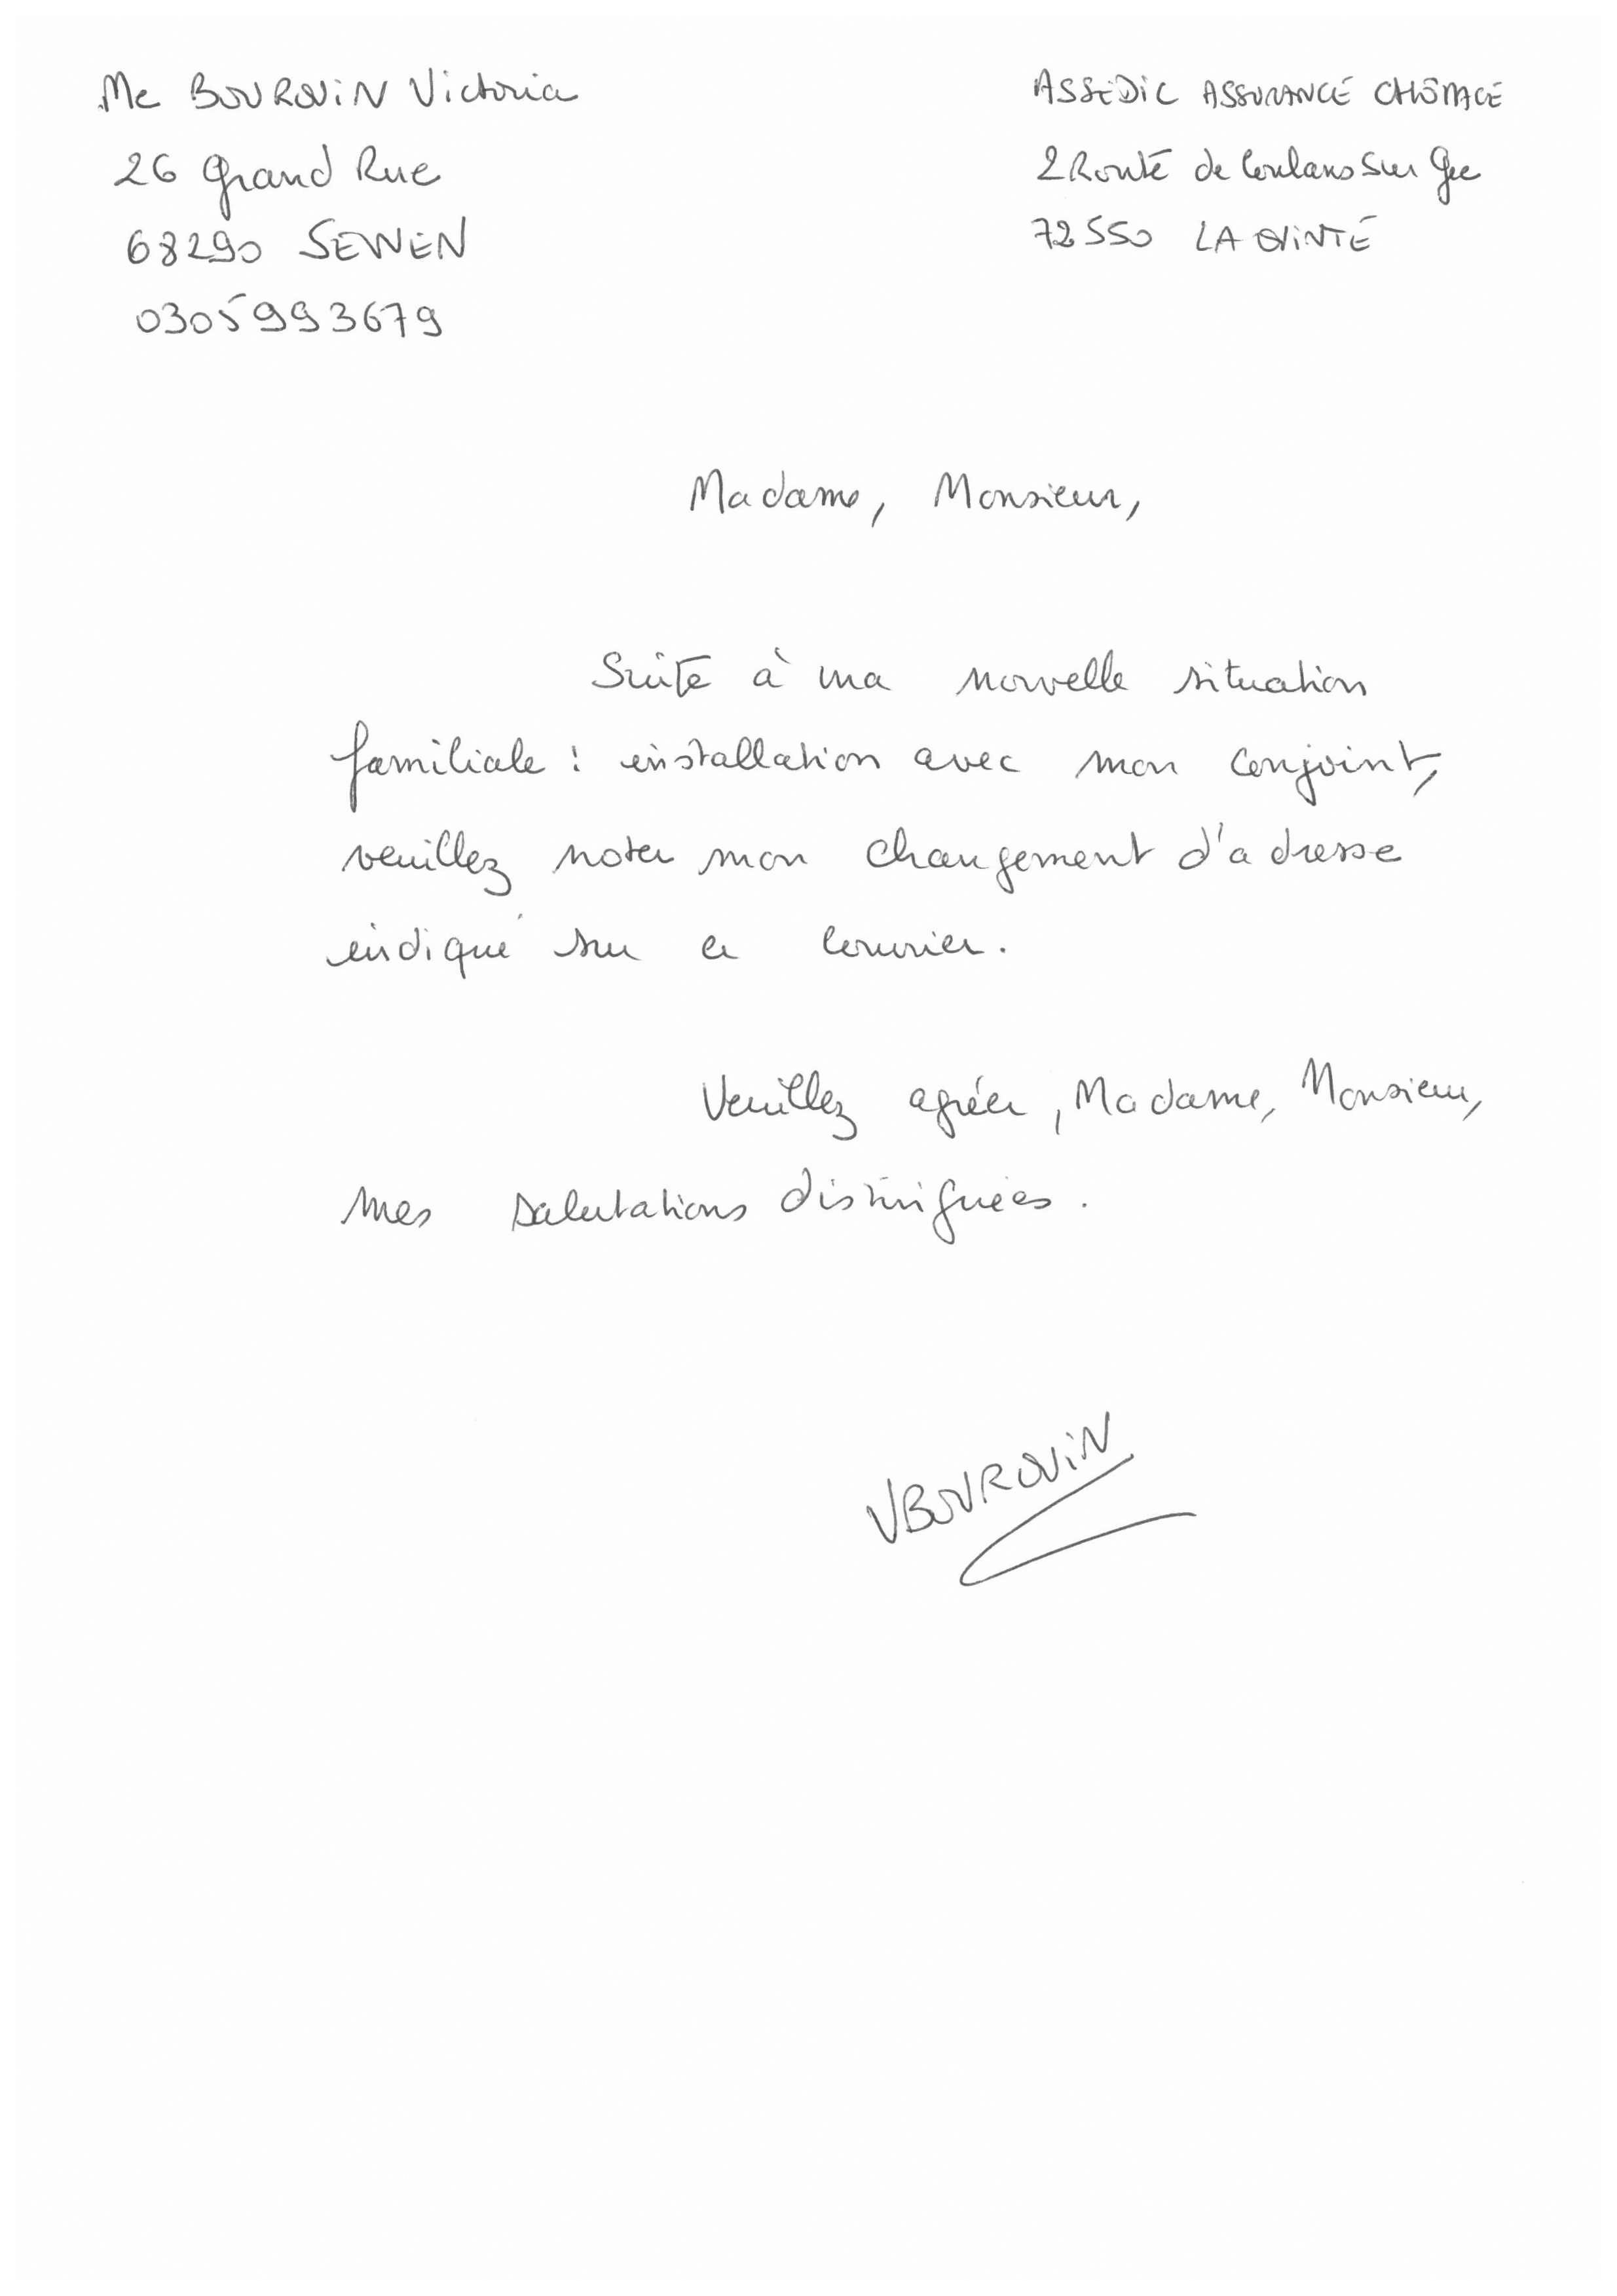 Me BOUROUIN Victoria
26 Grand Rue
68290 SEWEN
0305993679
ASSEDIC ASSURANCE CHÔMAGE
2 Route de Coulans sur Gée
72550 LA QUINTE
Madame, Monsieur,
Suite à ma nouvelle situation
familiale : installation avec mon conjoint,
veuillez noter mon changement d'adresse
indiqué sur ce courrier.
Veuillez agréer, Madame, Monsieur,
mes salutations distinguées.
V BOUROUIN